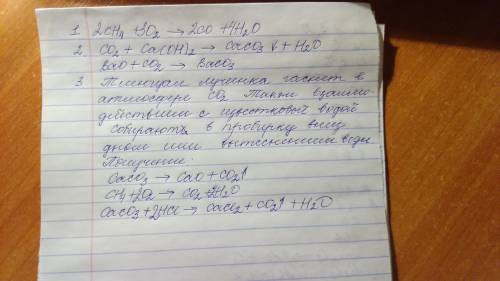 1. 2CH₄ + 3O₂ → 2CO + 4H₂O
2. CO₂ + Ca(OH)₂ → CaCO₃ ↓ + H₂O
BaO + CO₂ → BaCO₃
3 Тлеющая лучинка гаснет в
атмосфере CO₂. Также взаимо-
действием с известковой водой
собирают в пробирку вниз
дном или вытеснением воды
Получение:
CaCO₃ → CaO + CO₂↑
CH₄ + 2O₂ → CO₂ + 2H₂O
CaCO₃ + 2HCl → CaCl₂ + CO₂↑ + H₂O